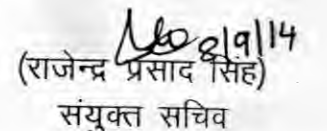 8/9/14
(राजेन्द्र प्रसाद सिंह)
संयुक्त सचिव